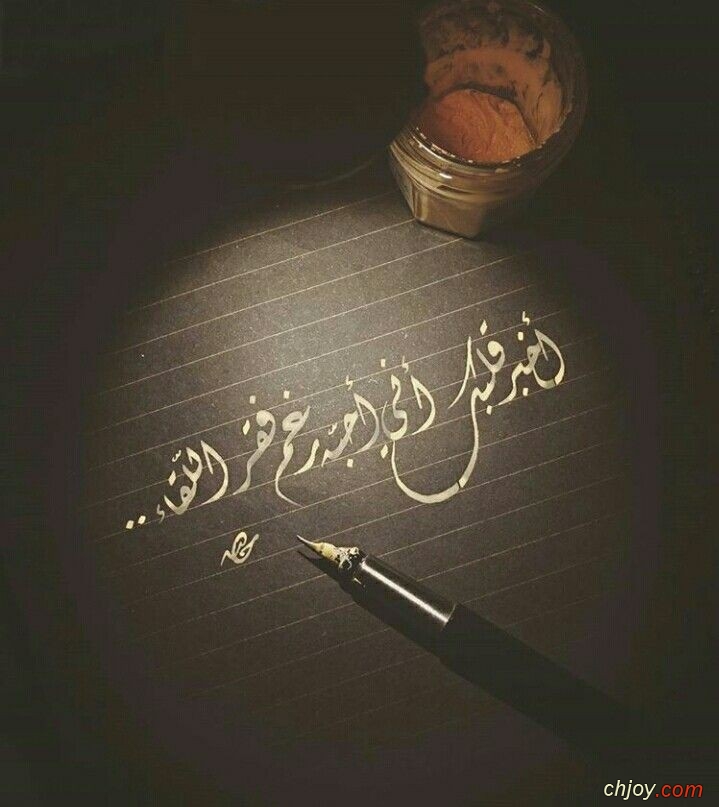 أخبر قلبك أني أحبه رغم فقر اللّقاء ..
chjoy.com